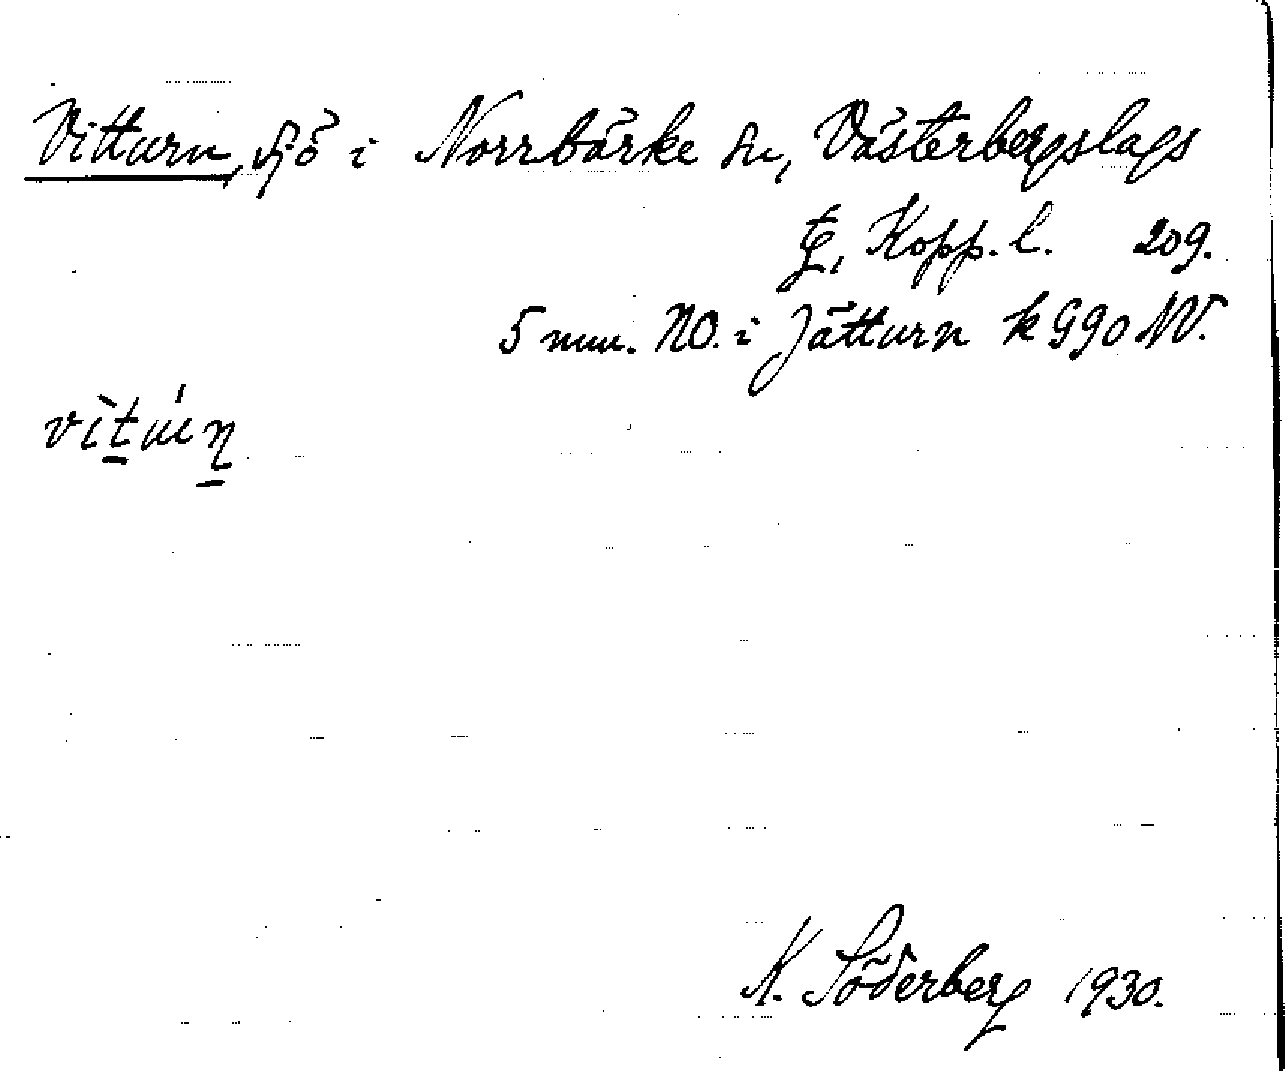 Vitturn, sjö i Norrbärke sn, Västerbergslags
fg, Kopp. l. 209.
5 mm. NO. i Jätturn k 990 NV.
K. Söderberg 1930.